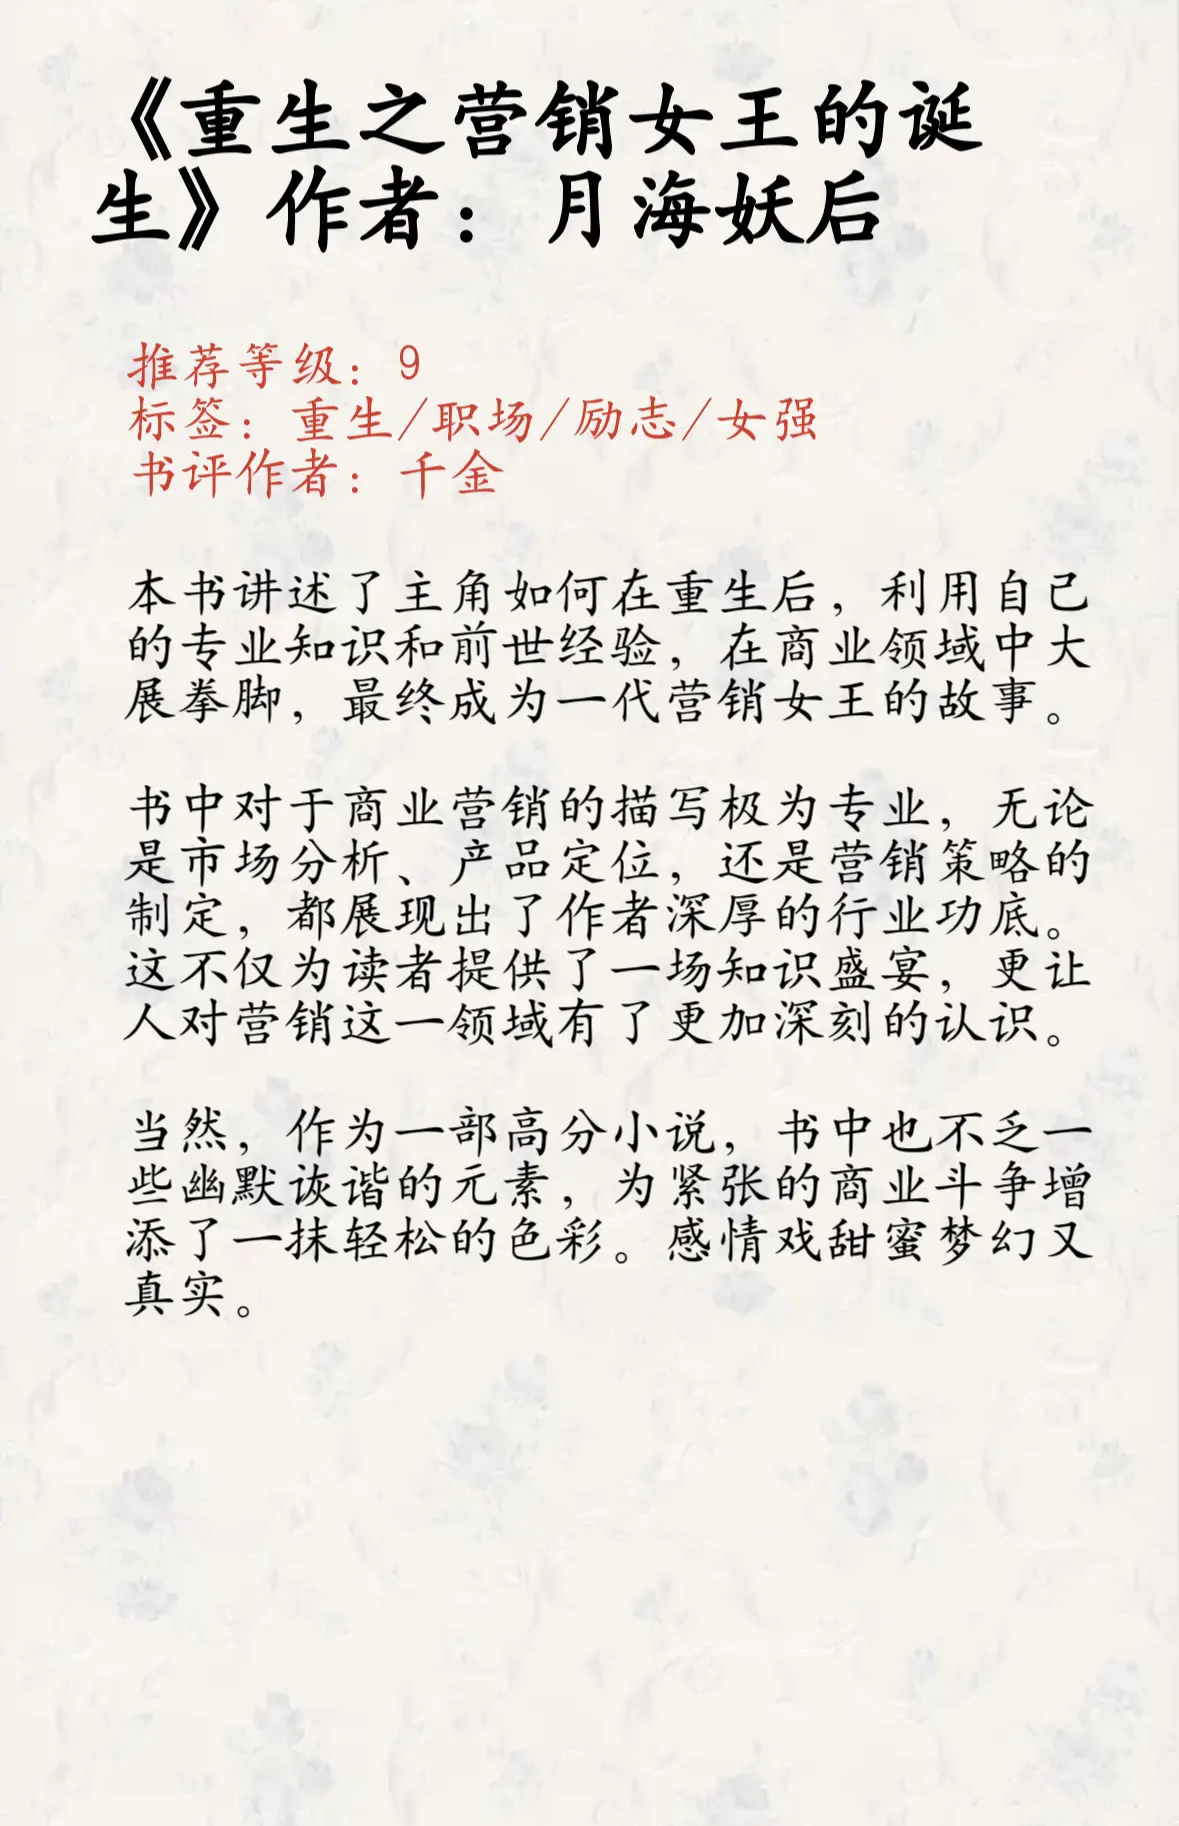 《重生之营销女王的诞
生》作者：月海妖后
推荐等级：9
标签：重生/职场/励志/女强
书评作者：千金
本书讲述了主角如何在重生后，利用自己
的专业知识和前世经验，在商业领域中大
展拳脚，最终成为一代营销女王的故事。
书中对于商业营销的描写极为专业，无论
是市场分析、产品定位，还是营销策略的
制定，都展现出了作者深厚的行业功底。
这不仅为读者提供了一场知识盛宴，更让
人对营销这一领域有了更加深刻的认识。
当然，作为一部高分小说，书中也不乏一
些幽默诙谐的元素，为紧张的商业斗争增
添了一抹轻松的色彩。感情戏甜蜜梦幻又
真实。